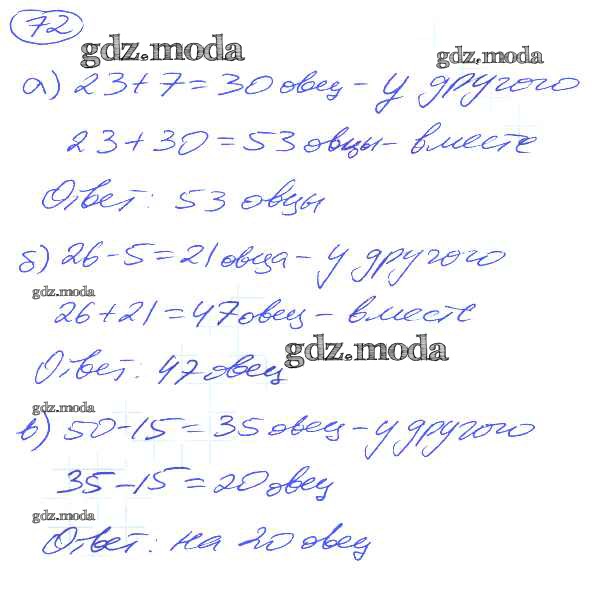 72
gdz.moda
gdz.moda
а) 23+7=30 овец - у другого
23+30=53 овцы - вместе
Ответ: 53 овцы
б) 26-5=21 овца - у другого
gdz.moda
26+21=47 овец - вместе
gdz.moda
Ответ: 47 овец
gdz.moda
в) 50-15=35 овец - у другого
35-15=20 овец
gdz.moda
Ответ: на 20 овец